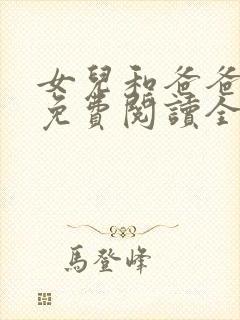 女兒和爸爸
免費閱讀全
馬登峰